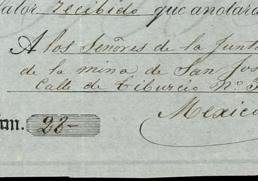 valor recibido que anotará
A los Señores de la Junta
de la mina de San Jos
Calle de Tiburcio Nº
Mexico
um. 28-